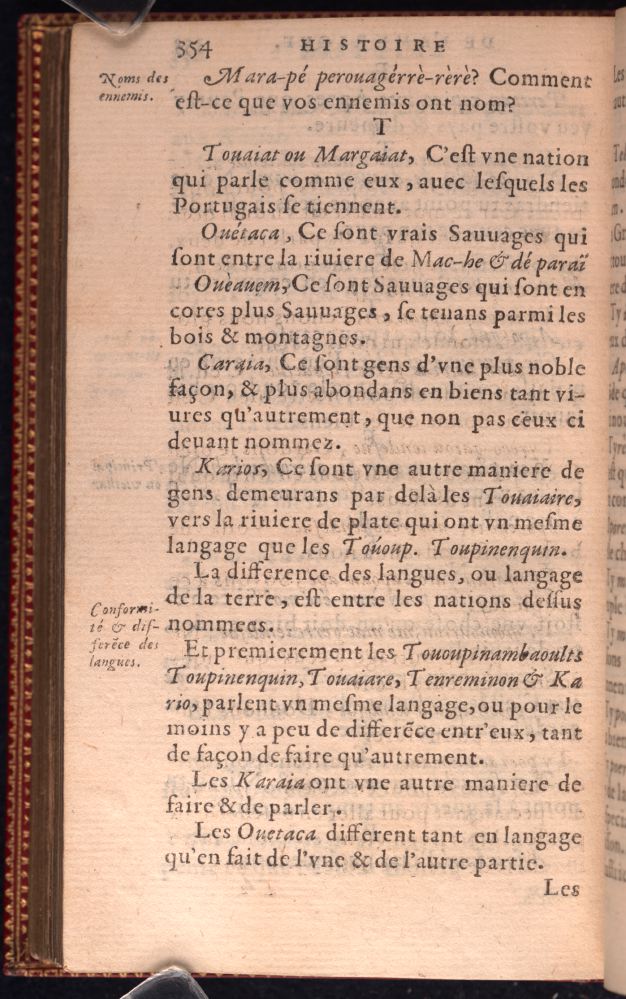 354 HISTOIRE
Noms des
ennemis.
Mara-pé perouagérrè-rèrè? Comment
eſt-ce que vos ennemis ont nom?
T
Touaiat ou Margaiat, C'eſt vne nation
qui parle comme eux, auec leſquels les
Portugais ſe tiennent.
Ouétaca, Ce ſont vrais Sauuages qui
ſont entre la riuiere de Mac-he & dé paraï
Ouèauem, Ce ſont Sauuages qui ſont en
cores plus Sauuages, ſe tenans parmi les
bois & montagnes.
Caraia, Ce ſont gens d'vne plus noble
façon, & plus abondans en biens tant vi-
ures qu'autrement, que non pas ceux ci
deuant nommez.
Karios, Ce ſont vne autre maniere de
gens demeurans par delà les Touaiaire,
vers la riuiere de plate qui ont vn meſme
langage que les Toúoup. Toupinenquin.
La difference des langues, ou langage
de la terre, eſt entre les nations deſſus
nommees.
Conformi-
té & dif-
ferẽce des
langues.
Et premierement les Tououpinambaoults
Toupinenquin, Touaiare, Tenreminon & Ka
rio, parlent vn meſme langage, ou pour le
moins y a peu de differẽce entr'eux, tant
de façon de faire qu'autrement.
Les Karaia ont vne autre maniere de
faire & de parler.
Les Ouetaca different tant en langage
qu'en fait de l'vne & de l'autre partie.
Les